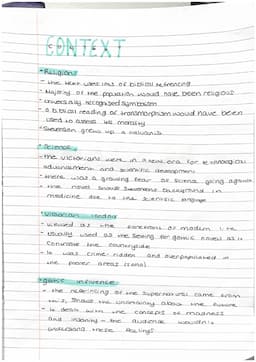 CONTEXT
• Religion
- the text uses lots of biblical referencing
- Majority of the population would have been religious
- universally recognised symbolism
- a biblical reading of transmorphism would have been
used to assess its morality
- Stevenson grew up a calvanist
• Science
- the victorians were in a new era for
advancement and scientific development
- there was a growing fear of science going against
- the novel shows Stevensons background in
medicine due to the scientific language
• Victorian London
- viewed as the of modern life
- usually used as the setting for gothic novels as it
the countryside
- It was crime-ridden and overpopulated in
the poorer areas (soho)
• gothic influence
- the referencing of the supernatural came from
this, shows the uncertainty about the future
- It deals with the concepts of madness
and insanity - the audience wouldn't
understand these feelings